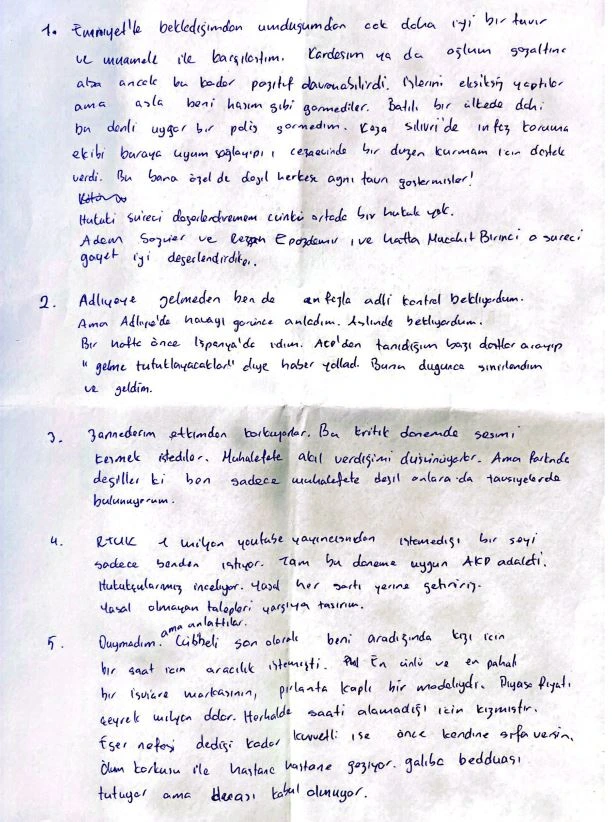 1. Emniyet'te beklediğimden umduğumdan çok daha iyi bir tavır
ve muamele ile karşılaştım. Kardeşim ya da oğlum gözaltına
alsa ancak bu kadar pozitif davranabilirdi. İşlerini eksiksiz yaptılar
ama asla beni hasım gibi görmediler. Batılı bir ülkede dahi
bu denli uygar bir polis görmedim. Keza Silivri'de infaz koruma
ekibi buraya uyum sağlayıp, cezaevinde bir düzen kurmam için destek
verdi. Bu bana özel de değil herkese aynı tavrı göstermişler!
Hukuki süreci değerlendiremem çünkü ortada bir hukuk yok.
Adem Sözüer ve Rezan Epözdemir, ve hatta Mücahit Birinci o süreci
gayet iyi değerlendirdiler.
2. Adliyeye gelmeden ben de en fazla adli kontrol bekliyordum.
Ama Adliye'de havayı görünce anladım. Aslında bekliyordum.
Bir hafta önce İspanya'da idim. AKP'den tanıdığım bazı dostlar arayıp
"gelme tutuklayacaklar" diye haber yolladı. Bunu duyunca sinirlendim
ve geldim.
3. Zannederim etkimden korkuyorlar. Bu kritik dönemde sesimi
kesmek istediler. Muhalefete akıl verdiğimi düşünüyorlar. Ama farkında
değiller ki ben sadece muhalefete değil onlara da tavsiyelerde
bulunuyorum.
4. RTÜK 1 milyon youtube yayıncısından istemediği bir şeyi
sadece benden istiyor. Tam bu döneme uygun AKP adaleti.
Hukukçularımız inceliyor. Yasal her şartı yerine getiririz.
Yasal olmayan talepleri yargıya taşırım.
5. Duymadım. ama anlattılar. Cübbeli son olarak beni aradığında kızı için
bir saat için aracılık istemişti. En ünlü ve en pahalı
bir İsviçre markasının, pırlanta kaplı bir modeliydi. Piyasa fiyatı
çeyrek milyon dolar. Herhalde saati alamadığı için kızmıştır.
Eğer nefesi dediği kadar kuvvetli ise önce kendine şifa versin.
Ölüm korkusu ile hastane hastane geziyor. galiba bedduası
tutuyor ama duası kabul olunuyor.